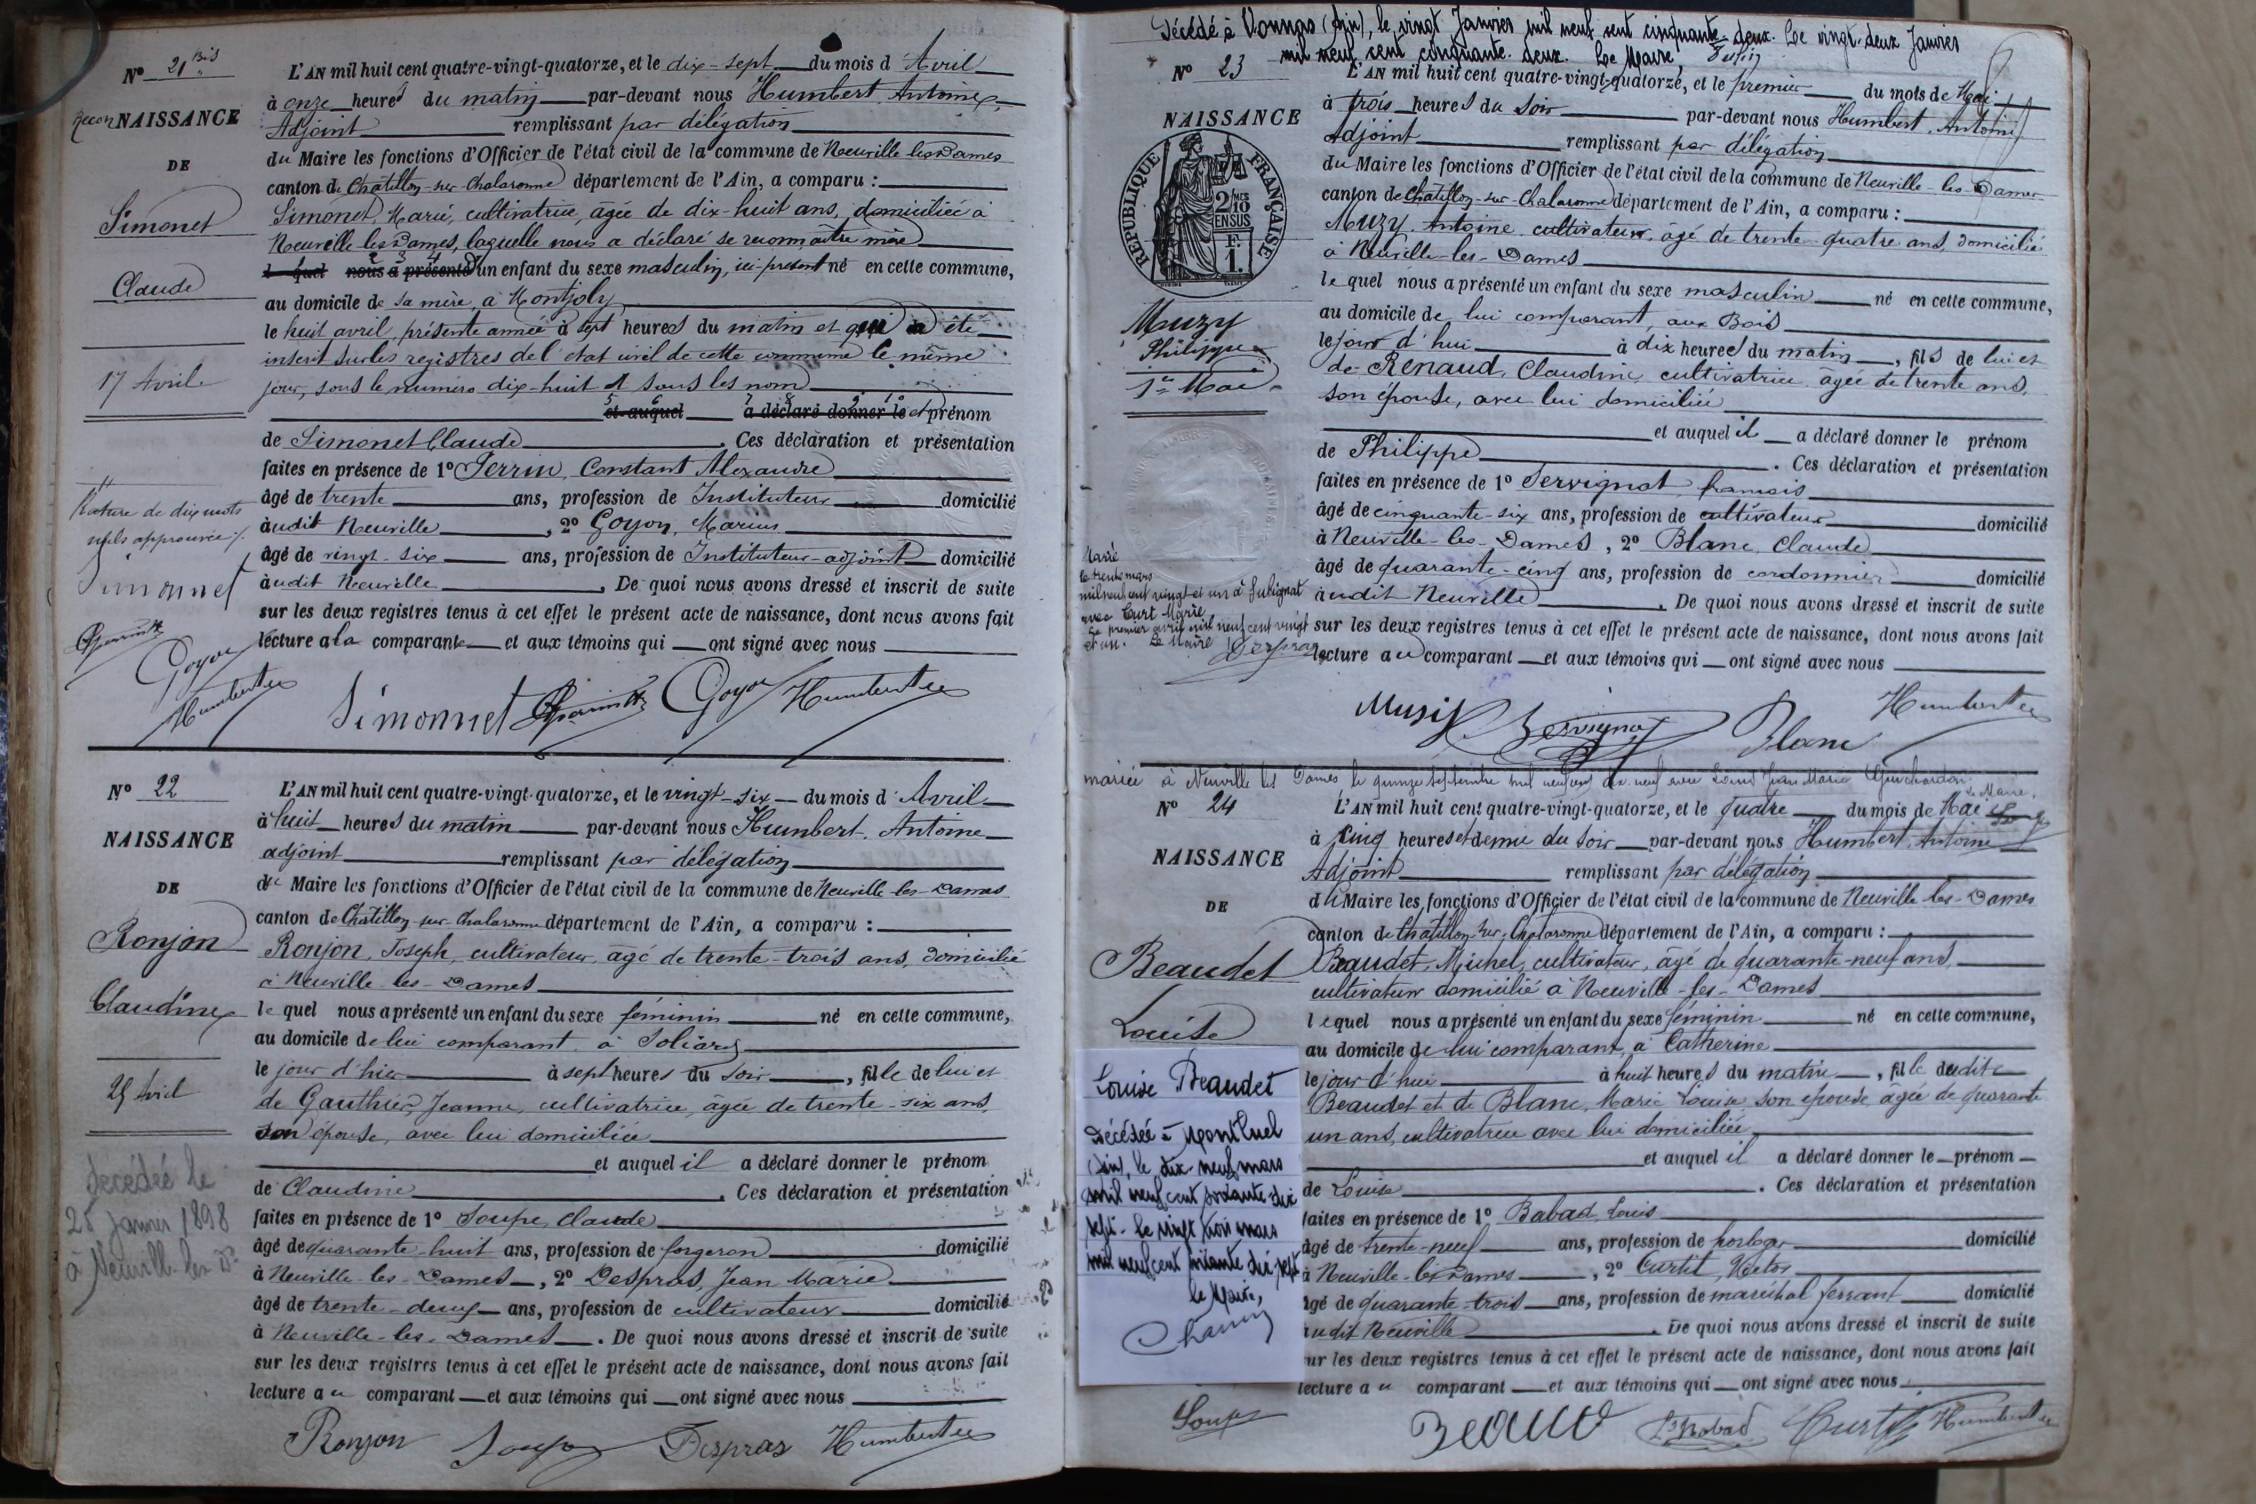 N° 21 Bis
L'AN mil huit cent quatre-vingt-quatorze, et le dix-sept du mois d'Avril
à onze heures du matin par-devant nous Humbert Antoine
Recon NAISSANCE
Adjoint remplissant par délégation
DE
du Maire les fonctions d'Officier de l'état civil de la commune de Neuville les Dames
canton de Chatillon-sur-Chalaronne département de l'Ain, a comparu :
Simonet
Simonet, Marie, cultivatrice, âgée de dix-huit ans, domiciliée à
Neuville les Dames, laquelle nous a déclaré se reconnaître mère
Claude
l quel nous a présenté d'un enfant du sexe masculin, ici présent né en cette commune,
au domicile de sa mère, à Montjoly
le huit avril, présente année à sept heures du matin et qui a été
inscrit sur les registres de l'état civil de cette commune le même
17 Avril
jour, sous le numéro dix-huit et sous les nom
et auquel a déclaré donner le et prénom
de Simonet Claude. Ces déclaration et présentation
faites en présence de 1° Perrin, Constant Alexandre
âgé de trente ans, profession de Instituteur domicilié
Rature de dix mots
nuls approuvée
audit Neuville, 2° Goyon, Marius
âgé de vingt-six ans, profession de Instituteur-adjoint domicilié
Simonnet
audit Neuville. De quoi nous avons dressé et inscrit de suite
sur les deux registres tenus à cet effet le présent acte de naissance, dont nous avons fait
lecture a la comparante et aux témoins qui ont signé avec nous
Goyon
Humbert
Simonnet Goyon Humbert
N° 22
L'AN mil huit cent quatre-vingt-quatorze, et le vingt-six du mois d'Avril
à huit heures du matin par-devant nous Humbert, Antoine
NAISSANCE
adjoint remplissant par délégation
DE
du Maire les fonctions d'Officier de l'état civil de la commune de Neuville-les-Dames
canton de Chatillon-sur-Chalaronne département de l'Ain, a comparu :
Ronjon
Ronjon, Joseph, cultivateur, âgé de trente-trois ans, domicilié
à Neuville-les-Dames
Claudine
le quel nous a présenté un enfant du sexe féminin né en cette commune,
au domicile de lui comparant à Soliard
le jour d'hier à sept heures du soir, fille de lui et
25 Avril
de Gauthier, Jeanne, cultivatrice, âgée de trente-six ans,
son épouse, avec lui domiciliée
et auquel il a déclaré donner le prénom
Décédée le
25 janvier 1898
à Neuville-les-D.
de Claudine. Ces déclaration et présentation
faites en présence de 1° Soupe, Claude
âgé de quarante-huit ans, profession de forgeron domicilié
à Neuville-les-Dames, 2° Despras, Jean Marie
âgé de trente-deux ans, profession de cultivateur domicilié
à Neuville-les-Dames. De quoi nous avons dressé et inscrit de suite
sur les deux registres tenus à cet effet le présent acte de naissance, dont nous avons fait
lecture a u comparant et aux témoins qui ont signé avec nous
Ronjon Soupe Despras Humbert
Décédé à Vonnas (Ain), le vingt Janvier mil neuf cent cinquante-deux. Le vingt-deux Janvier
mil neuf cent cinquante-deux. Le Maire,
N° 23
L'AN mil huit cent quatre-vingt-quatorze, et le premier du mois de Mai
à trois heures du soir par-devant nous Humbert, Antoine
NAISSANCE
Adjoint remplissant par délégation
RÉPUBLIQUE FRANÇAISE
2/10 EN SUS
F. 1.
du Maire les fonctions d'Officier de l'état civil de la commune de Neuville-les-Dames
canton de Chatillon-sur-Chalaronne département de l'Ain, a comparu :
Muzy, Antoine, cultivateur, âgé de trente-quatre ans, domicilié
à Neuville-les-Dames
le quel nous a présenté un enfant du sexe masculin né en cette commune,
Muzy
Philippe
1er Mai
au domicile de lui comparant, aux Bois
le jour d'hui à dix heures du matin, fils de lui et
de Renaud, Claudine, cultivatrice, âgée de trente ans,
son épouse, avec lui domiciliée
et auquel il a déclaré donner le prénom
de Philippe. Ces déclaration et présentation
faites en présence de 1° Servignat, françois
âgé de cinquante-six ans, profession de cultivateur domicilié
à Neuville-les-Dames, 2° Blanc, Claude
âgé de quarante-cinq ans, profession de cordonnier domicilié
Marié
le trente mars
mil neuf cent vingt et un à Sulignat
avec Curt Marie
Le premier avril mil neuf cent vingt
et un. Le Maire
Despras
audit Neuville. De quoi nous avons dressé et inscrit de suite
sur les deux registres tenus à cet effet le présent acte de naissance, dont nous avons fait
lecture a u comparant et aux témoins qui ont signé avec nous
Musy Servignat Blanc Humbert
mariée à Neuville les Dames le quinze septembre mil neuf cent dix neuf avec Louis Jean Marie Guichardon. Le Maire,
N° 24
L'AN mil huit cent quatre-vingt-quatorze, et le quatre du mois de Mai
à cinq heures et demie du soir par-devant nous Humbert, Antoine
NAISSANCE
Adjoint remplissant par délégation
DE
du Maire les fonctions d'Officier de l'état civil de la commune de Neuville-les-Dames
canton de Chatillon-sur-Chalaronne département de l'Ain, a comparu :
Beaudet
Beaudet, Michel, cultivateur, âgé de quarante-neuf ans,
cultivateur domicilié à Neuville-les-Dames
Louise
lequel nous a présenté un enfant du sexe féminin né en cette commune,
au domicile de lui comparant, à Catherine
le jour d'hui à huit heures du matin, fille dudit
Beaudet et de Blanc, Marie Louise son épouse, âgée de quarante
un ans, cultivatrice avec lui domiciliée
et auquel il a déclaré donner le prénom
Louise Beaudet
Décédée à Montluel
(Ain), le dix neuf mars
mil neuf cent soixante dix
sept. le vingt trois mars
mil neuf cent soixante dix sept
le Maire,
de Louise. Ces déclaration et présentation
faites en présence de 1° Babad, Louis
âgé de trente-neuf ans, profession de horloger domicilié
à Neuville-les-Dames, 2° Curtil, Victor
âgé de quarante-trois ans, profession de maréchal ferrant domicilié
audit Neuville. De quoi nous avons dressé et inscrit de suite
sur les deux registres tenus à cet effet le présent acte de naissance, dont nous avons fait
lecture a u comparant et aux témoins qui ont signé avec nous
Babad Curtil Humbert